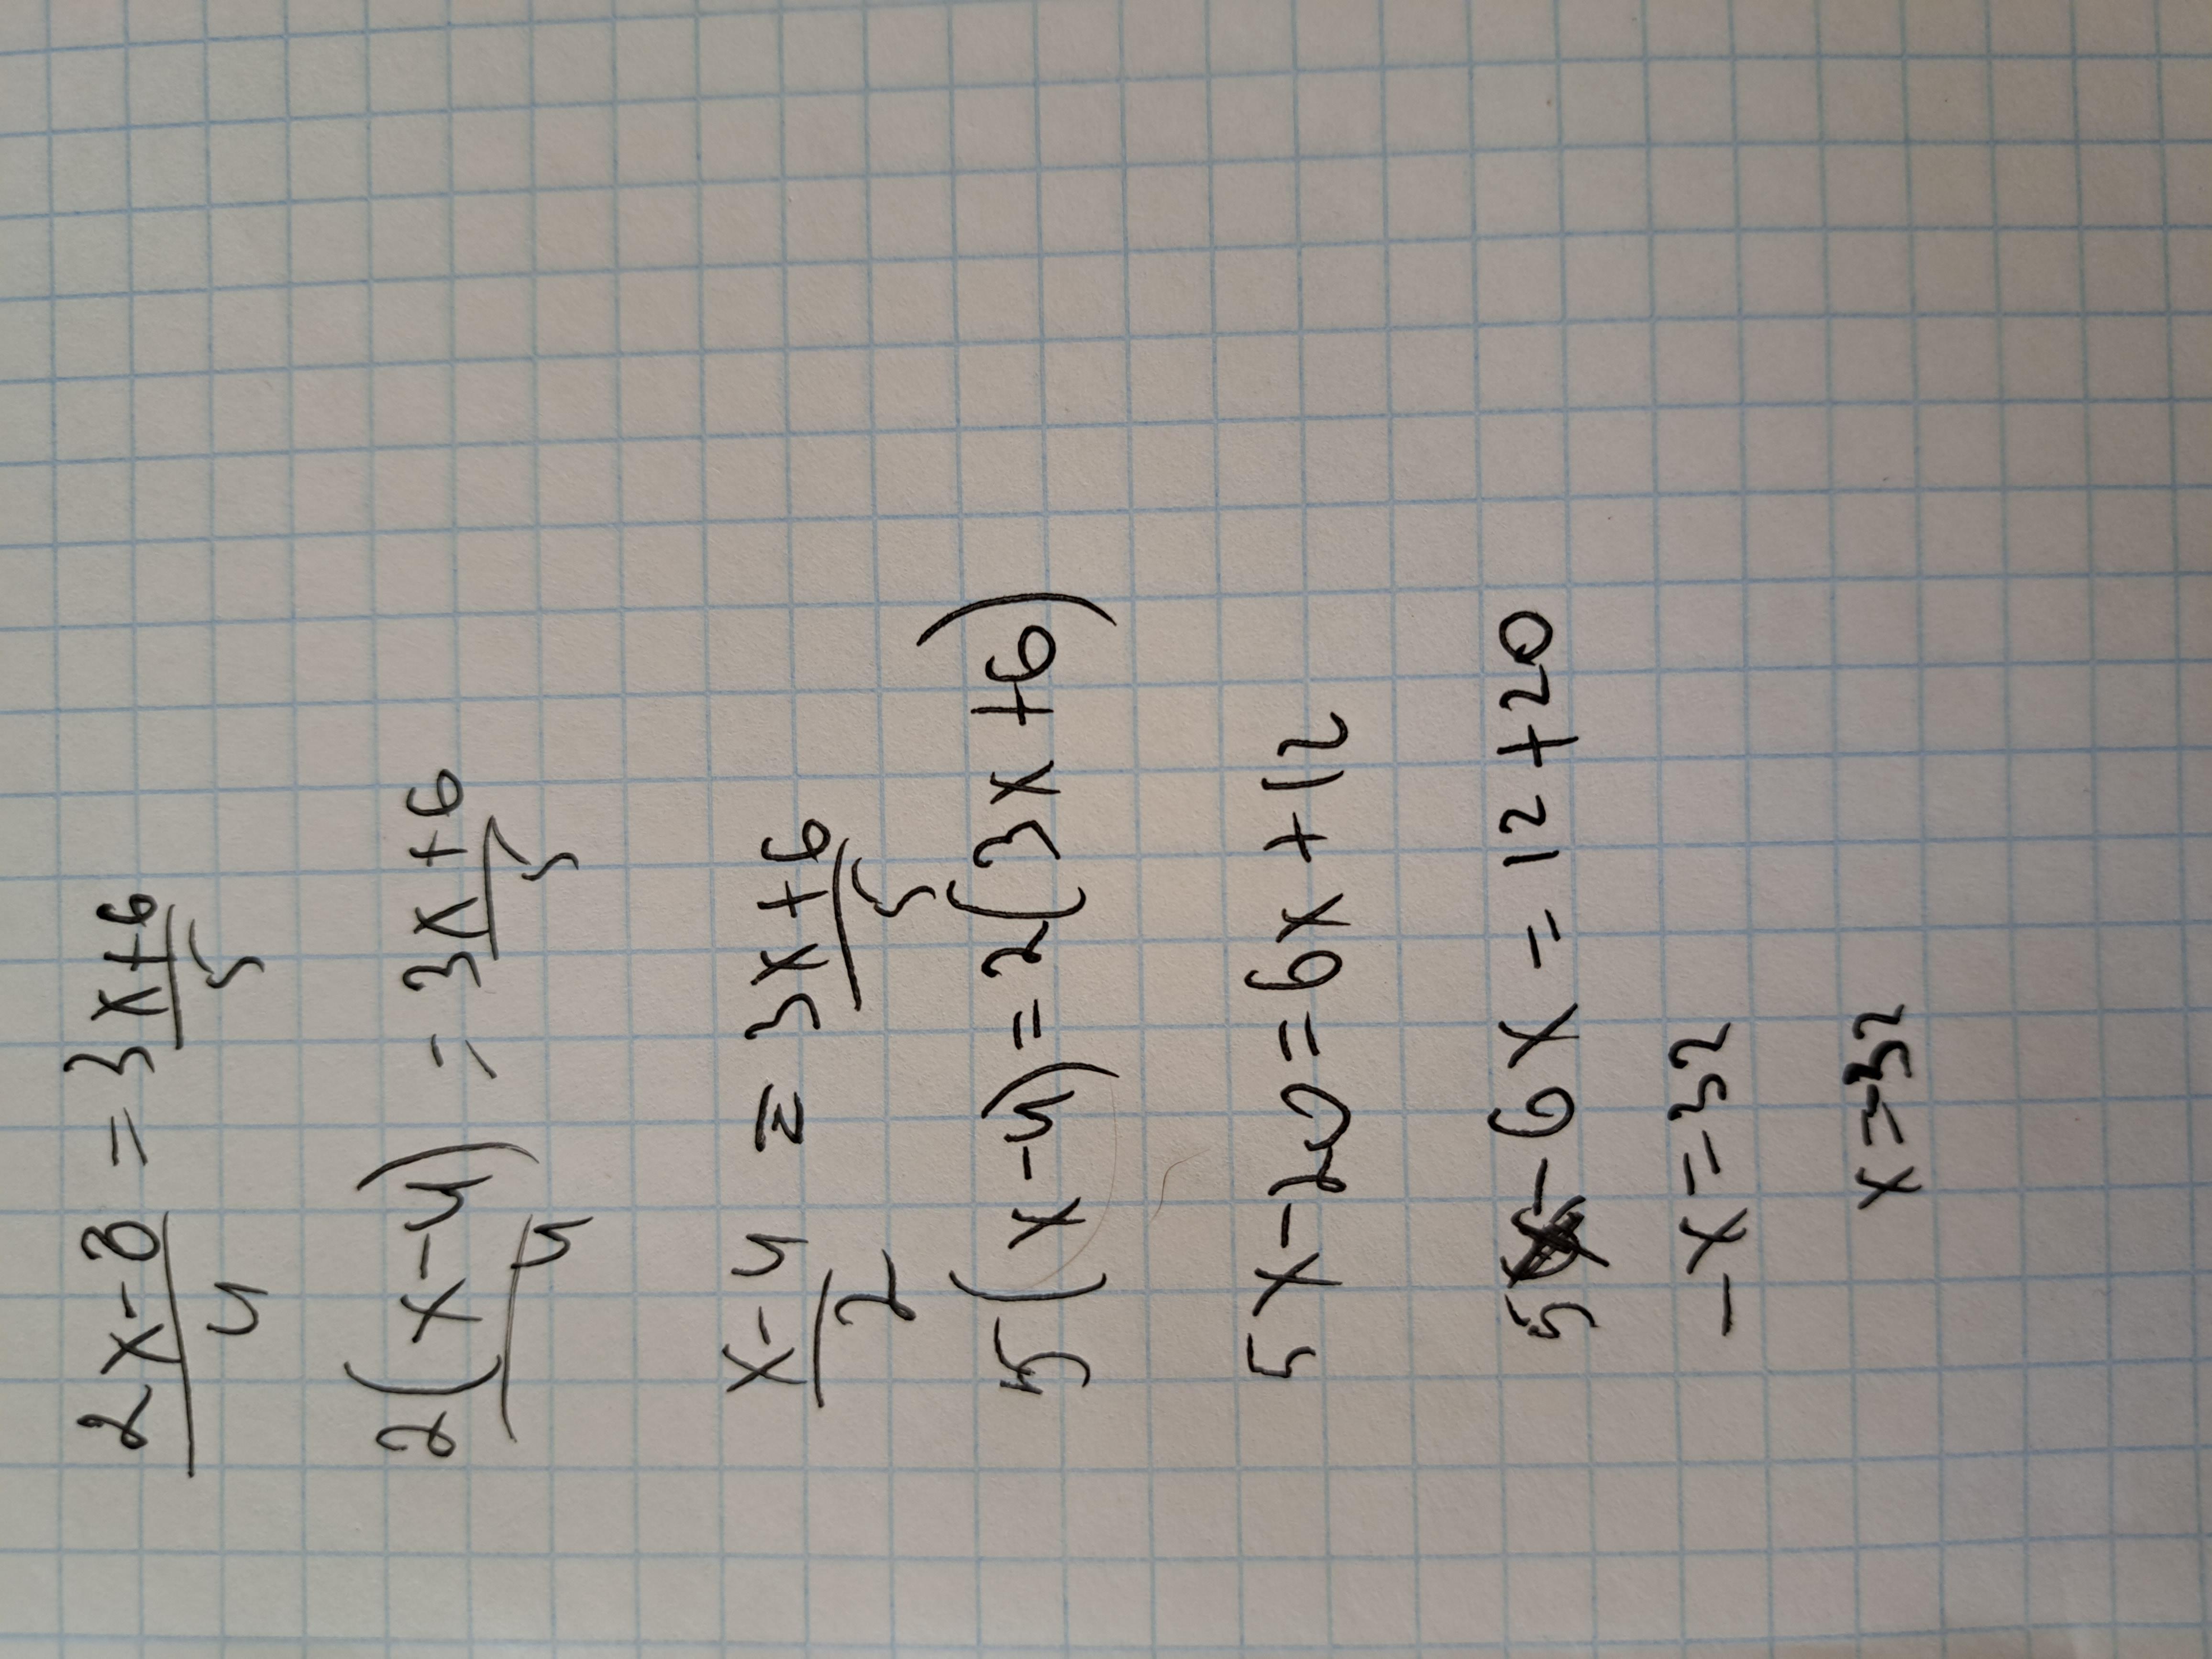 (2x-8)/4 = (3x+6)/5
2(x-4)/4 = (3x+6)/5
(x-4)/2 = (3x+6)/5
5(x-4)=2(3x+6)
5x-20=6x+12
5x-6x=12+20
-x=32
x=-32